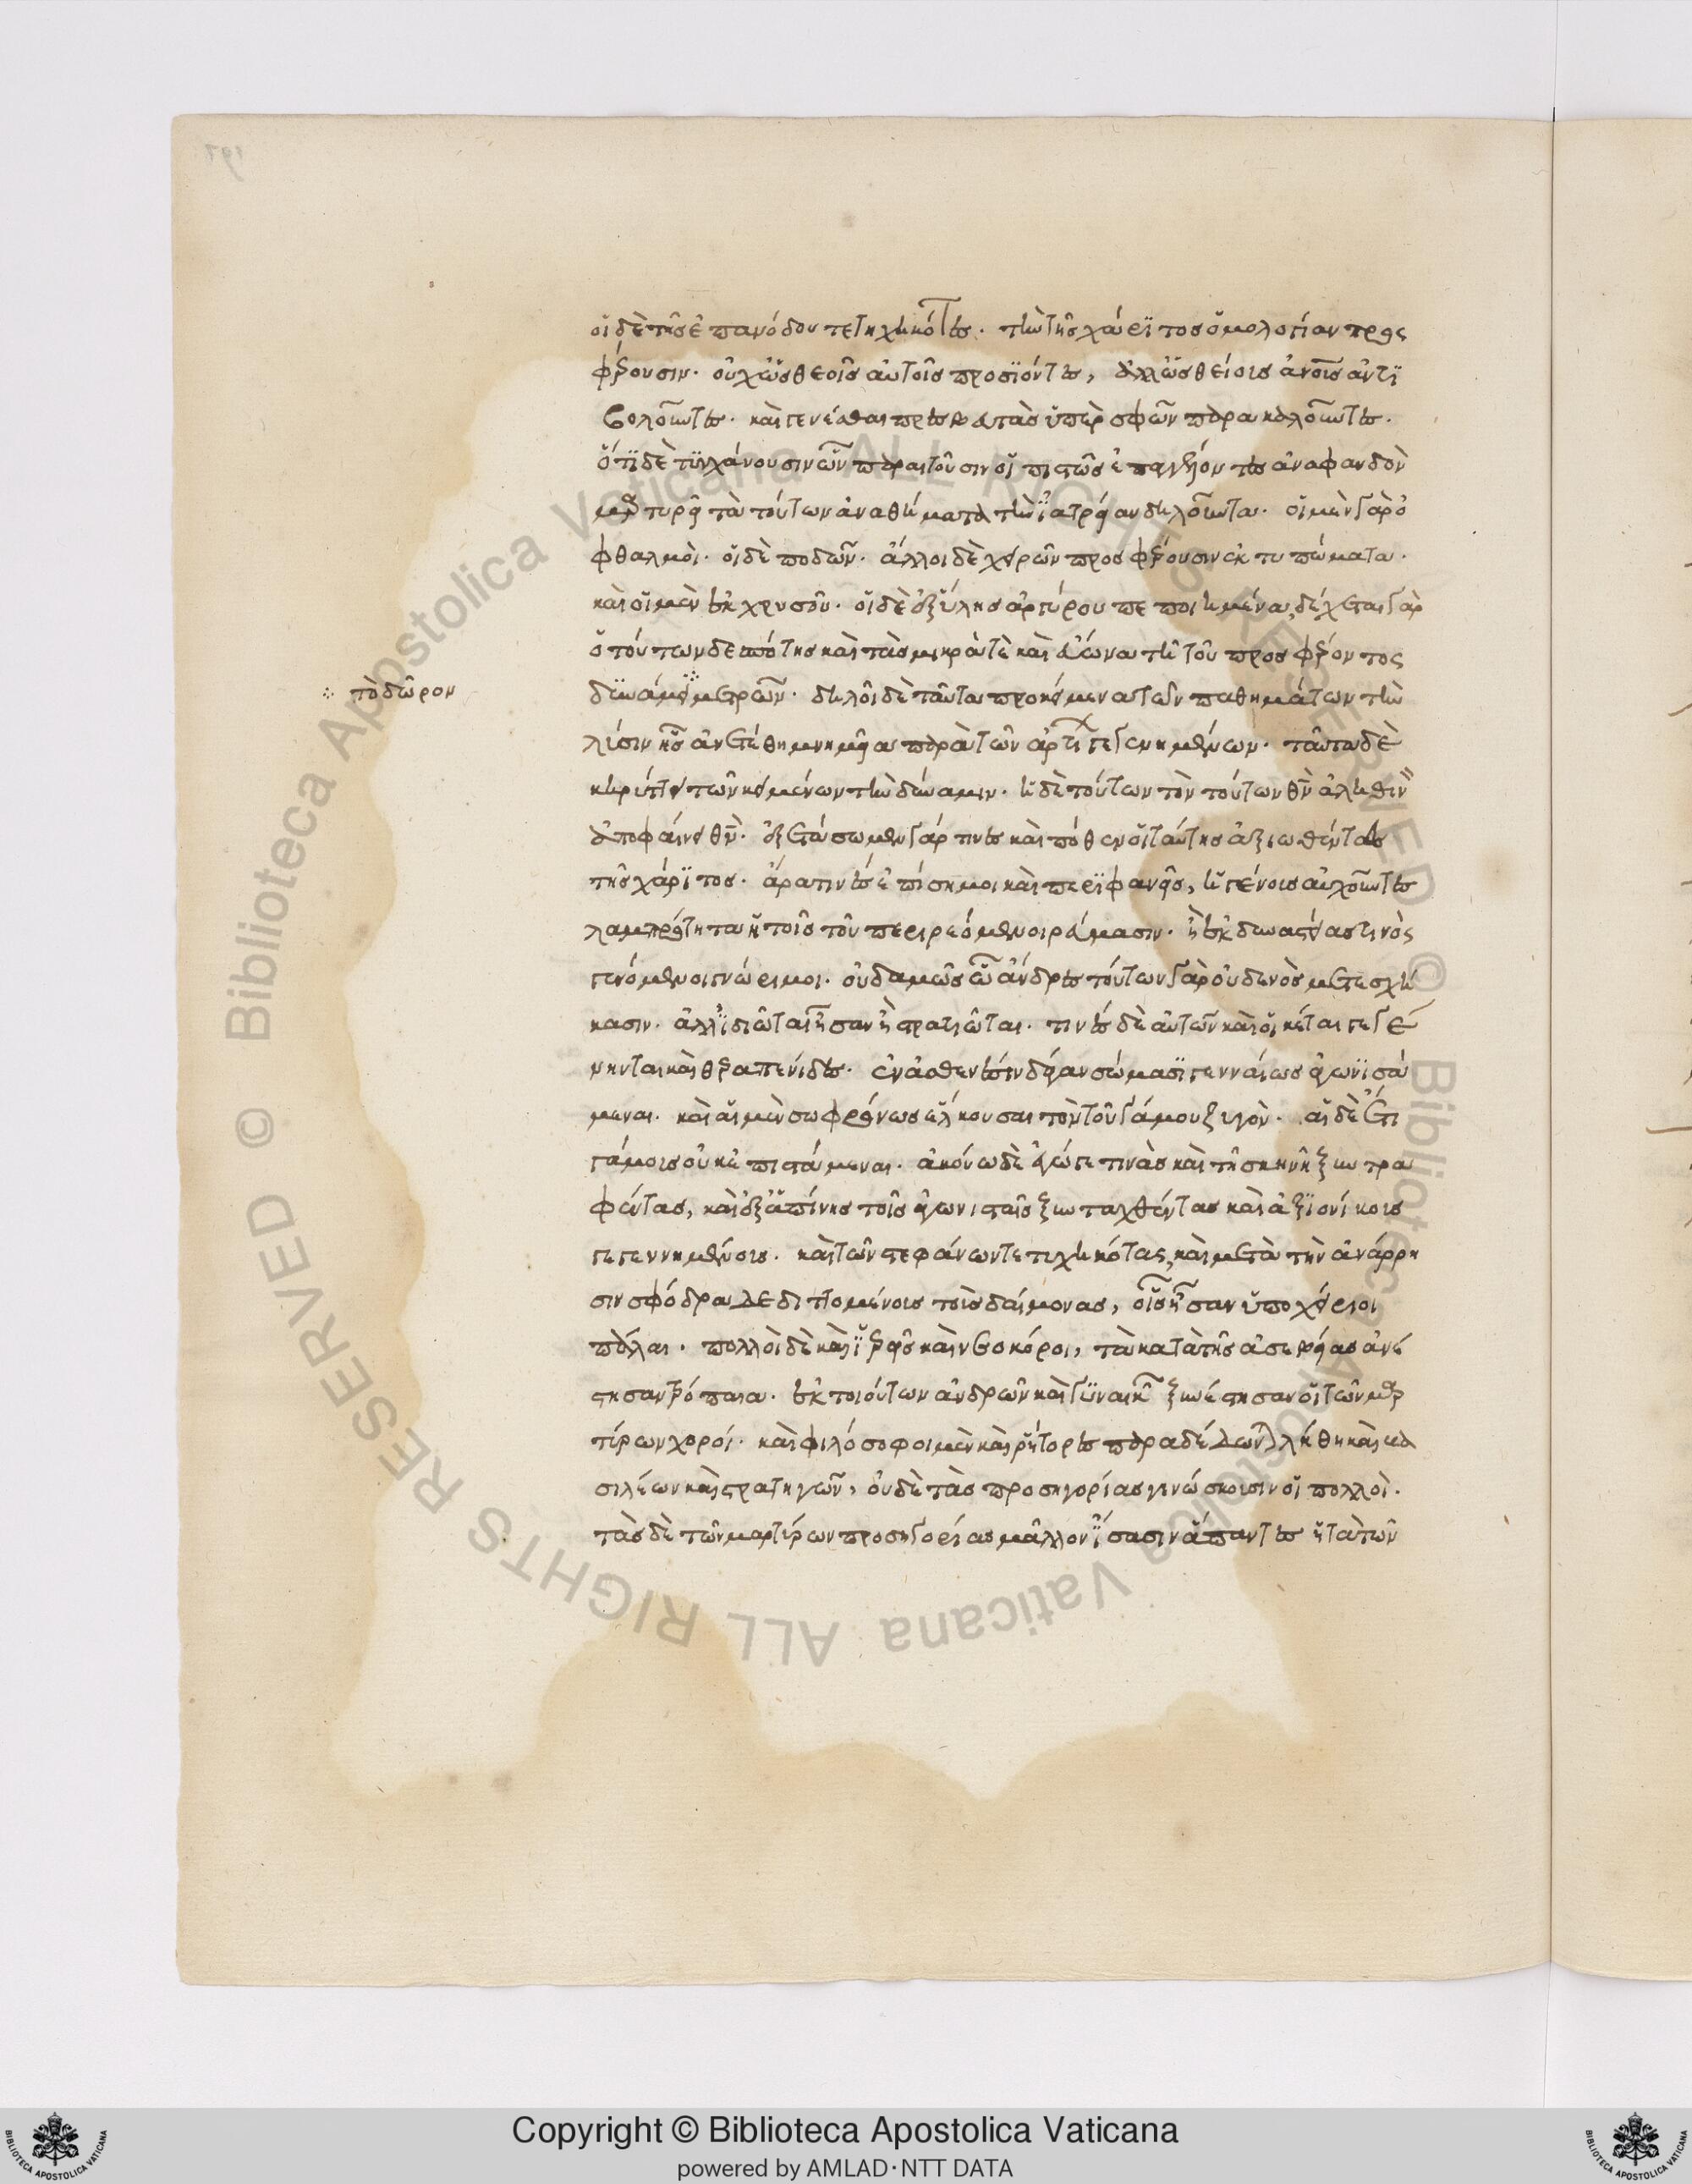 οἱ δὲ τῆς ἐπανόδου τετηχηκότες. τὴν τῆς χάριτος ὁμολογίαν προς
φέρουσιν. οὐχ ὡς θεοῖς αὐτοῖς προσϊόντες, ἀλλ ὡς θείοις ἀνοις ἀντϊ
βολοῦντες. καὶ γενέσθαι πρεσβευτὰς ὑπὲρ σφῶν παρακαλοῦντες.
ὅτϊ δὲ τϋγχάνουσιν ὧν παραιτοῦσιν οἱ πιστῶς ἐπαγγέλλοντες ἀναφανδὸν
μαρτυρεῖ τὰ τούτων ἀναθήματα τὴν ἰατρείαν δηλοῦντα. οἱ μὲν γὰρ ὀ
φθαλμὸι. οἱ δὲ ποδῶν. ἄλλοι δὲ χειρῶν προσφέρουσιν ἐκτυπώματα.
καὶ οἱ μὲν ἐκ χρυσοῦ. οἱ δὲ ἐξ ὕλης ἀργύρου πεποιημένα, δέχεται γὰρ
ὁ τούτων δεσπότης καὶ τὰ σμικρά τε καὶ εὔωνα τῆ τοῦ προσφέροντος
δυνάμει μετρῶν. δηλοῖ δὲ ταῦτα προκείμενα τῶν παθημάτων τὴν
λύσιν ἧς ἀνετέθη μνημεῖα παρὰ τῶν ἀρτι γεγενημένων. ταῦτα δὲ
κηρύττει τῶν κειμένων τὴν δύναμιν. ἡ δὲ τούτων τὸν τούτων θν ἀληθιν
ἀποφαίνει θν. ἐξετάσωμεν γάρ τινες καὶ πόθεν οἱ ταύτης ἀξιωθέντες
τῆς χάριτος. ἄρα τινὲς ἐπίσημοι καὶ περϊφανεῖς, ἢ γένοις αὐχοῦντες
λαμπρότητα ἢ τοῖς τοῦ περιρεόμενοι ράμασιν. ἢ ἐκ δυναστείας τινὸς
γενόμενοι γνώριμοι. οὐδαμῶς ὦ ἄνδρες τούτων γὰρ οὐδενὸς μετεσχή
κασιν. ἀλλ ἰδιῶται ἦσαν ἢ στρατιῶται. τινὲς δὲ αὐτῶν καὶ οἰκέται γεγέ
νηνται καὶ θεραπενίδες. ἐν ἀσθενέσιν δείαν σώμασϊ γενναίως ἀγωνϊσά
μεναι. καὶ αἱ μὲν σωφρόνως ἕλκουσαι τὸν τοῦ γάμου ζυγὸν. αἱ δὲ ἔτι
γάμοις οὐκ ἐπιστάμεναι. ἀκούω δὲ ἐγώ γε τινὰς καὶ τῆ σκηνῆ ξυντρα
φέντας, καὶ ἐξ ἀπίνης τοῖς ἀγωνισταῖς ξυνταχθέντας καὶ ἀξϊονίκοις
γεγεννημένοις. καὶ τῶν στεφάνων τετυχηκότας, καὶ μετὰ τὴν ἀνάρρη
σιν σφόδρα δεδιττομένοις τοὶς δαίμονας, οἷς ἦσαν ὑποχείριοι
πάλαι. πολλοὶ δὲ καὶ ϊερεῖς καὶ νεοκόροι, τὰ κατὰ τῆς ἀσεβείας ἀνέ
στησαν τρόπαια. ἐκ τοιούτων ἀνδρῶν καὶ γϋναικ ξυνέστησαν οἱ τῶν μαρ
τύρων χοροί. καὶ φιλόσοφοι μὲν καὶ ρήτορες παρεδέδων λήθη καὶ βα
σιλέων καὶ στρατηγῶν, οὐδὲ τὰς προσηγορίας γινώσκουσιν οἱ πολλοὶ.
τὰς δὲ τῶν μαρτύρων προσηγορίας μᾶλλον ἴσασιν ἅπαντες ἢ τὰ τῶν
⁘ τὸ δῶρον